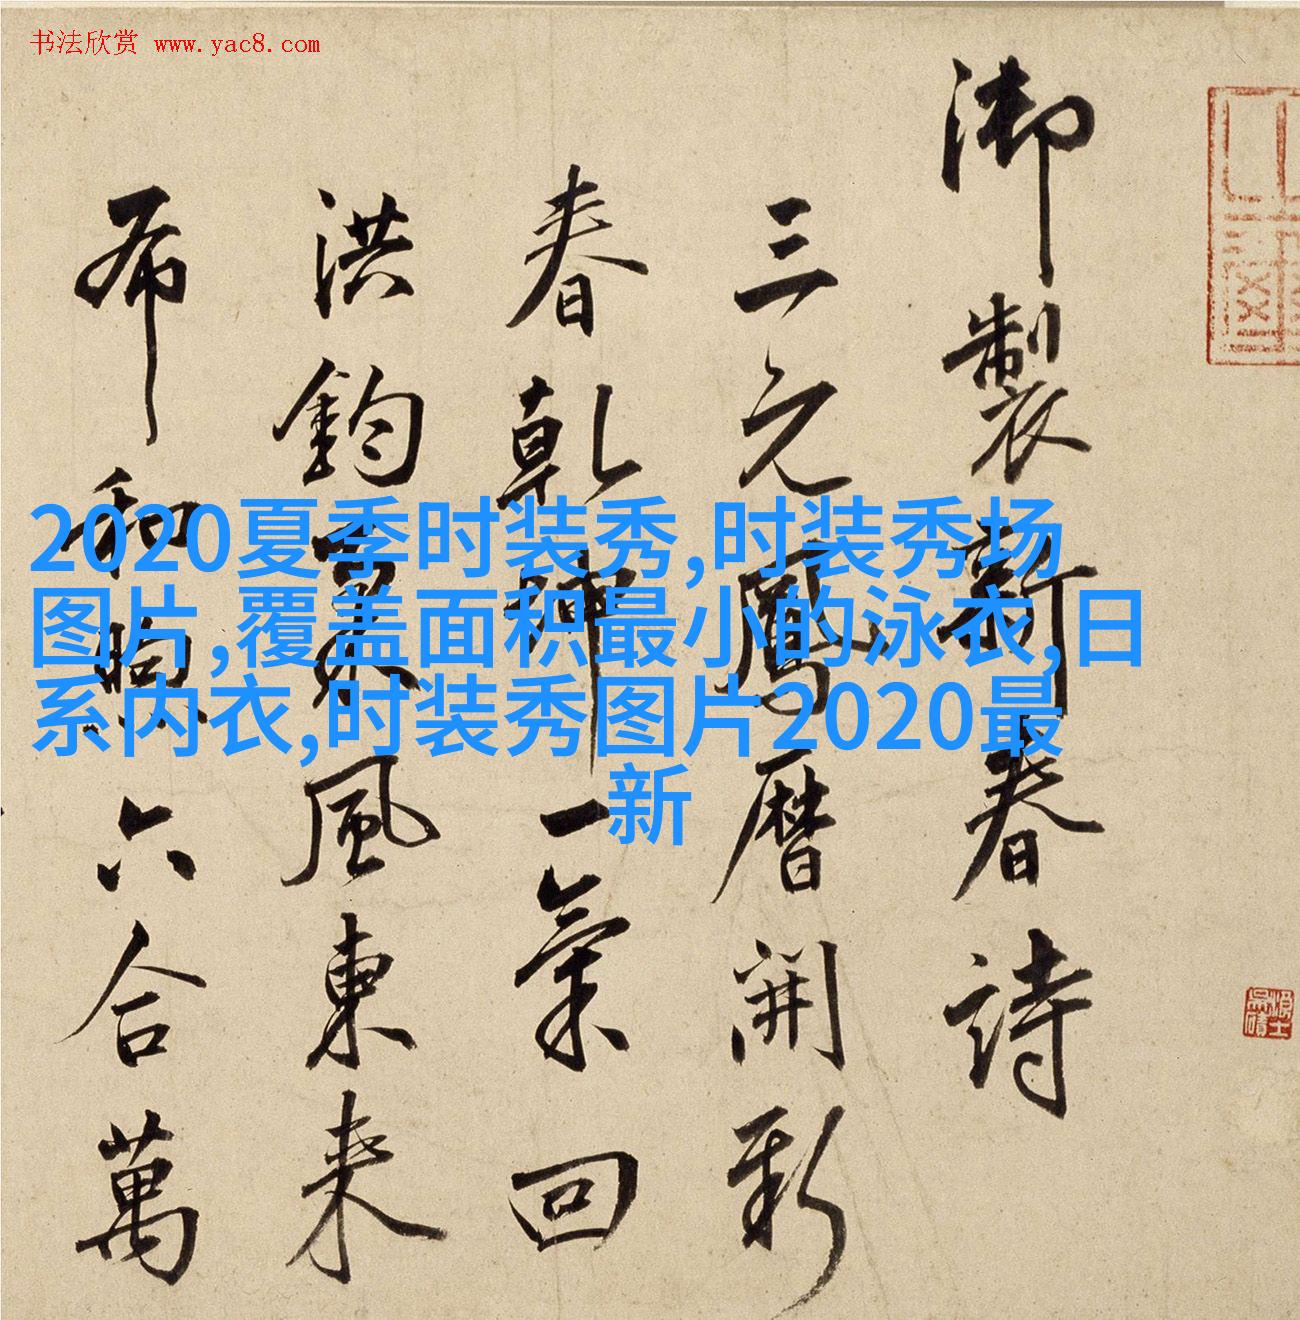 书法欣赏 www.yac8.com
2020夏季时装秀,时装秀场
图片,覆盖面积最小的泳衣,日
系内衣,时装秀图片2020最
新
御製新春詩
三元鳳曆開新
春乾坤一氣回
洪鈞風東來
布和煦六合萬